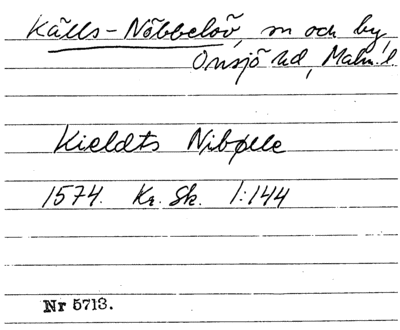 Källs-Nöbbelöv, sn och by,
Onsjö hd, Malm. l.
Kieldts Nibølle
1574. Kr. Sk. 1:144
Nr 5713.